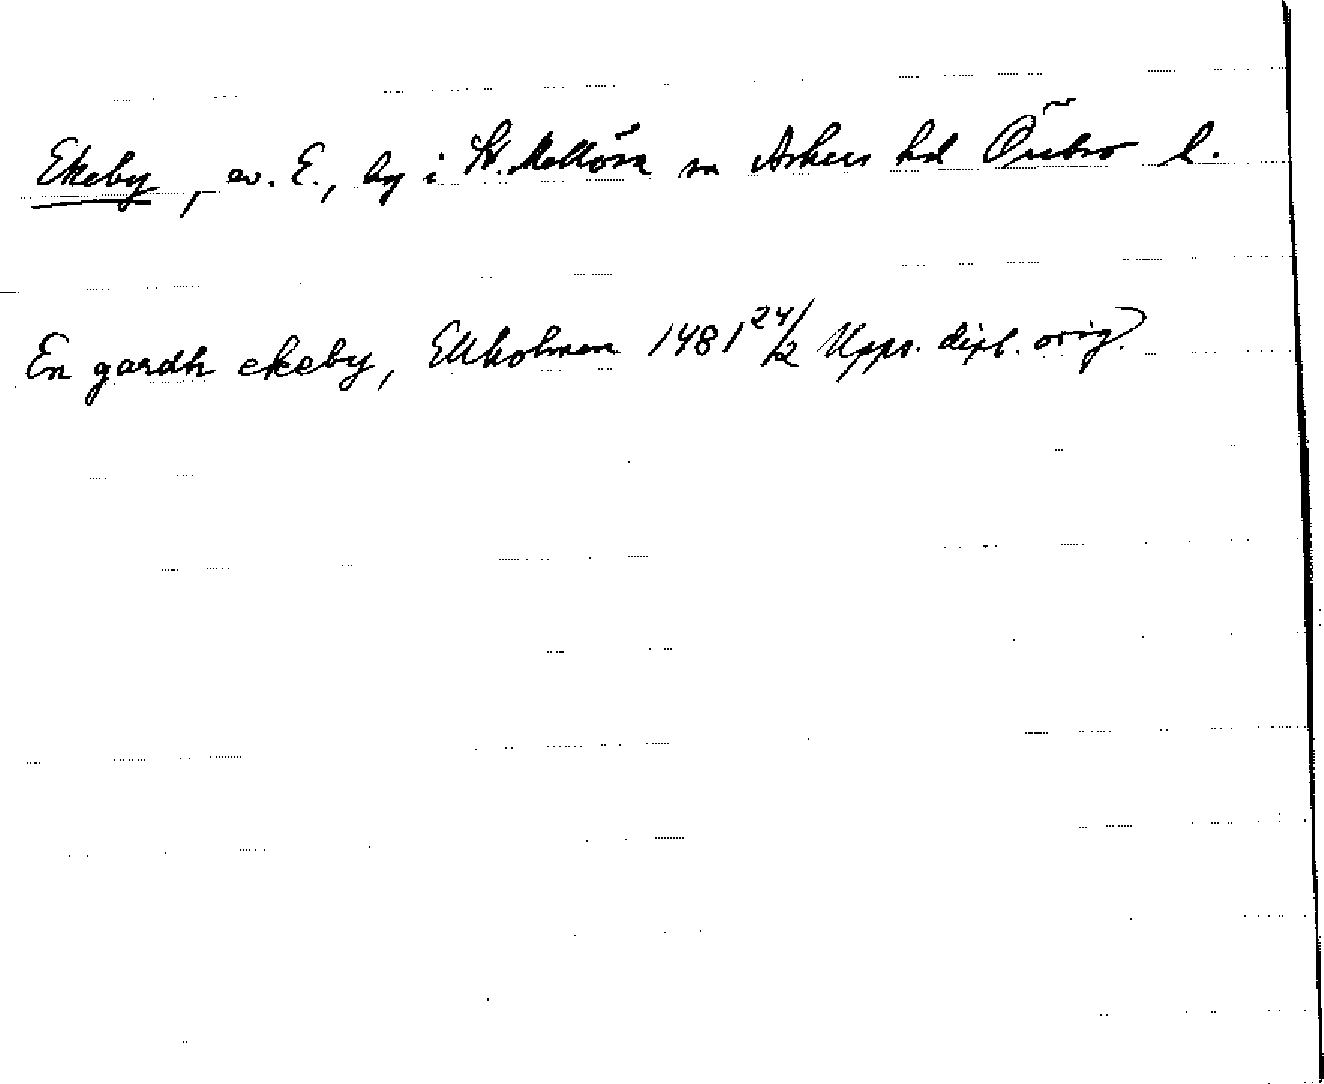 Ekeby, ev. E., by i St. Mellösa sn Askers hd Örebro l.
En gardh ekeby, Ekholmen 1481 24/2 Upps. dipl. orig.